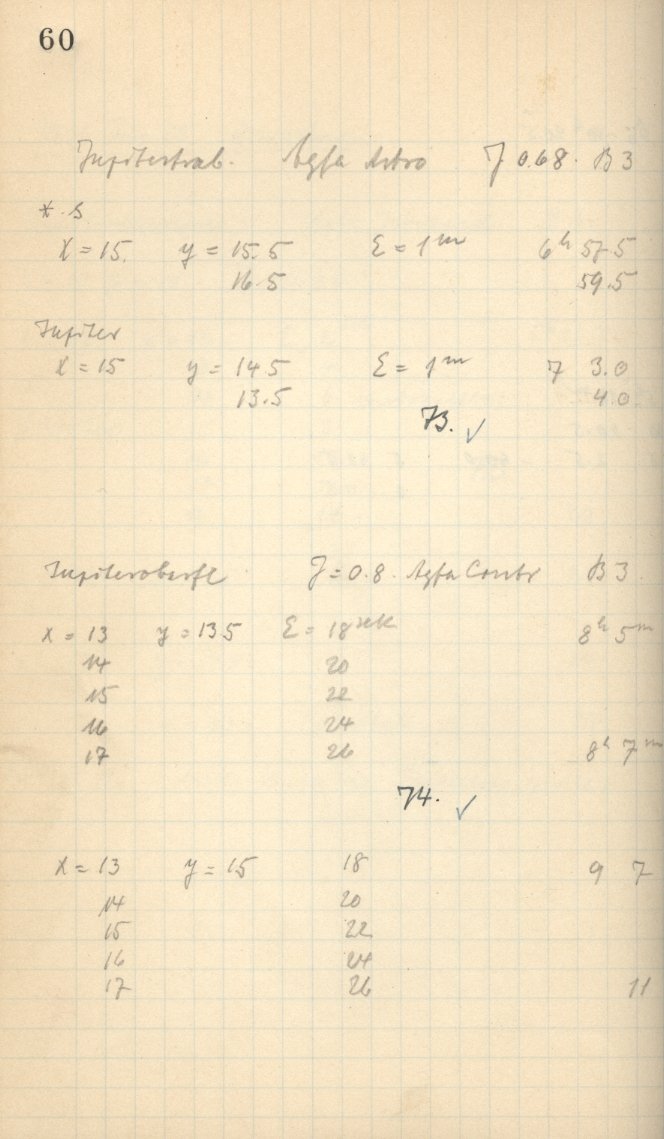 60
Jupitertrab. Agfa Astro J 0.68. B 3
* s
X = 15. y = 15.5 E = 1ᵐ 6ʰ 57.5
16.5 59.5
Jupiter
X = 15 y = 14.5 E = 1ᵐ 7 3.0
13.5 4.0
73. ✓
Jupiteroberfl J = 0.8. Agfa Contr B 3
x = 13 y = 13.5 E = 18 sek 8ʰ 5ᵐ
14 20
15 22
16 24
17 26 8ʰ 7ᵐ
74. ✓
X = 13 y = 15 18 9 7
14 20
15 22
16 24
17 26 11